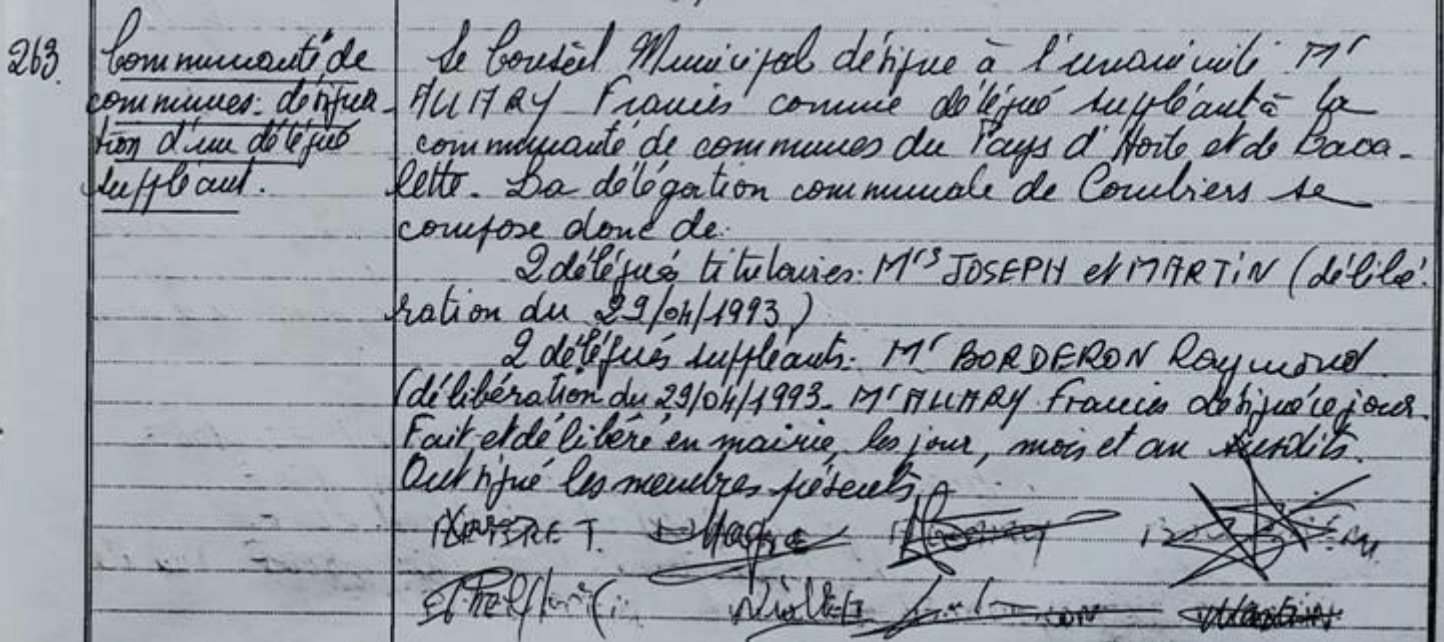 263.
Communauté de
communes: désigna-
tion d'un délégué
suppléant.
Le Conseil Municipal désigne à l'unanimité Mr
AUMARY Francis comme délégué suppléant à la
communauté de communes du Pays d'Horte et de Lava-
lette. La délégation communale de Combiers se
compose donc de:
2 délégués titulaires: Mrs JOSEPH et MARTIN (délibé-
ration du 29/04/1993)
2 délégués suppléants: Mr BORDERON Raymond
(délibération du 29/04/1993. Mr AUMARY Francis désigné ce jour.
Fait et délibéré en mairie, les jour, mois et an susdits.
Ont signé les membres présents,